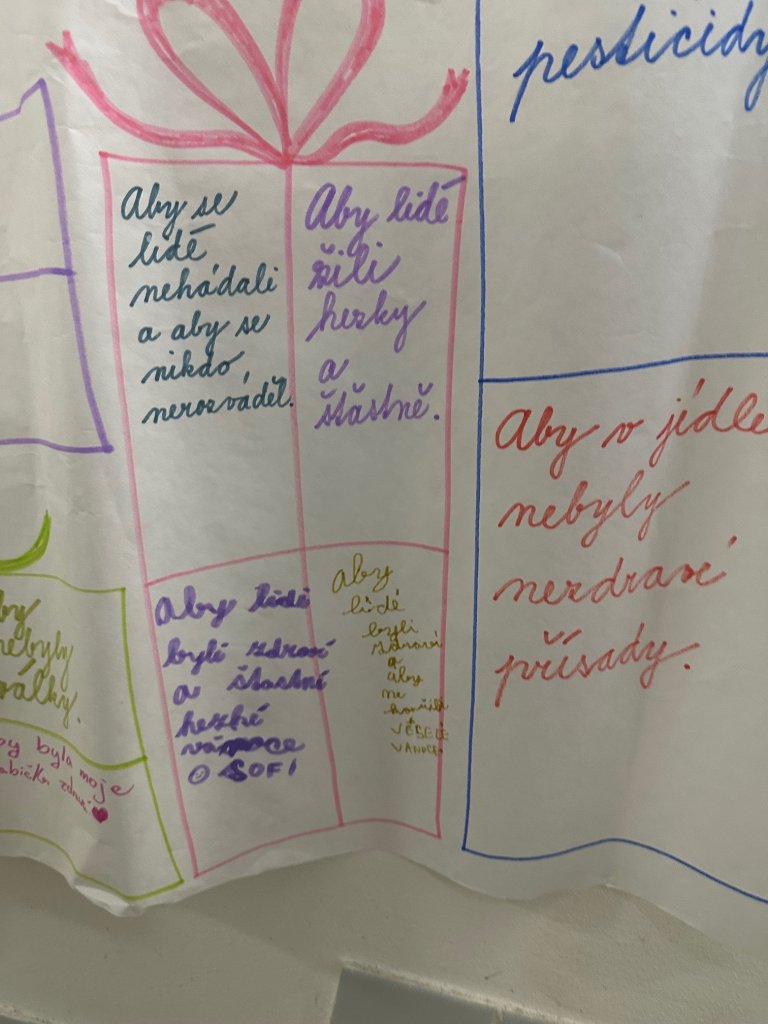 pesticidy
Aby se
lidé
nehádali
a aby se
nikdo
nerozváděl.
Aby lidé
žili
hezky
a
šťastně.
Aby v jídle
nebyly
nezdravé
přísady.
aby lidé
byli zdraví
a šťastní
hezké
vánoce
SOFI
aby
lidé
byli
zdraví
a
aby
ne
VESELÉ
VÁNOCE
nebyly
války.
byla moje
zdravá